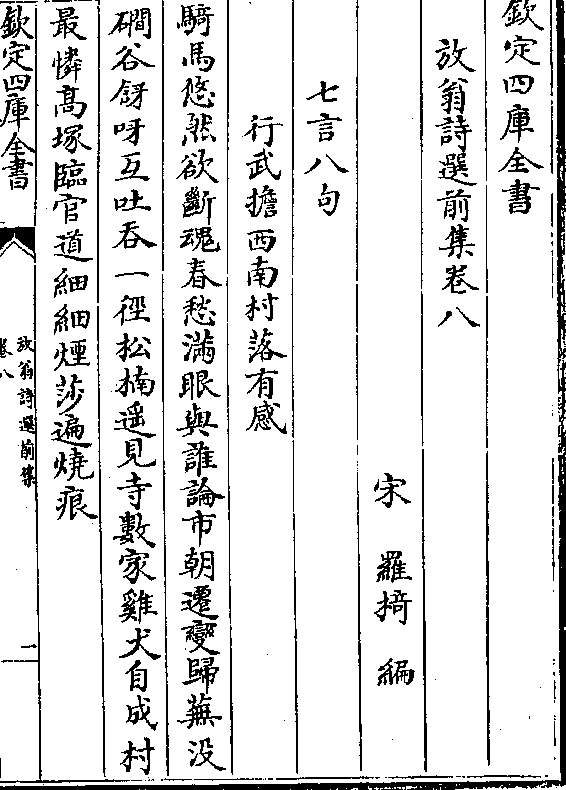 欽定四庫全書
放翁詩選前集卷八
宋　羅掎　編
七言八句
行武擔西南村落有感
騎馬悠然欲斷魂春愁滿眼與誰論市朝遷變歸蕪没
磵谷谺呀互吐吞一徑松楠遥見寺數家雞犬自成村
最憐髙塚臨官道細細煙莎遍燒痕
欽定四庫全書
放翁詩選前集
卷八
一